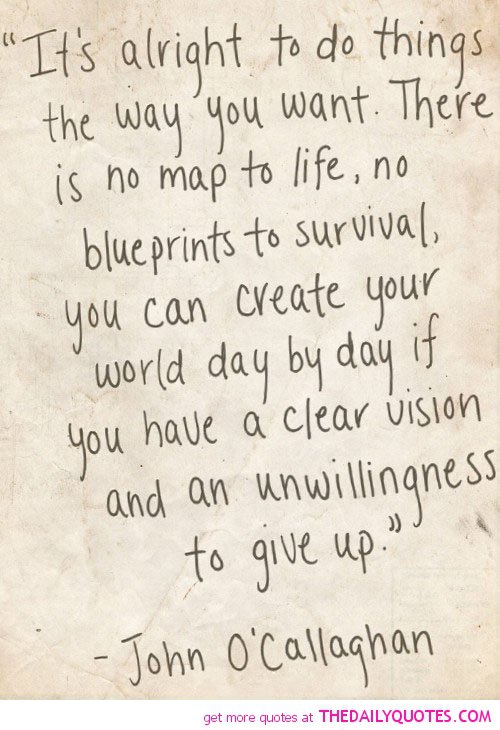 “It's alright to do things
the way you want. There
is no map to life, no
blueprints to survival,
you can create your
world day by day if
you have a clear vision
and an unwillingness
to give up.”
- John O'Callaghan
get more quotes at THEDAILYQUOTES.COM